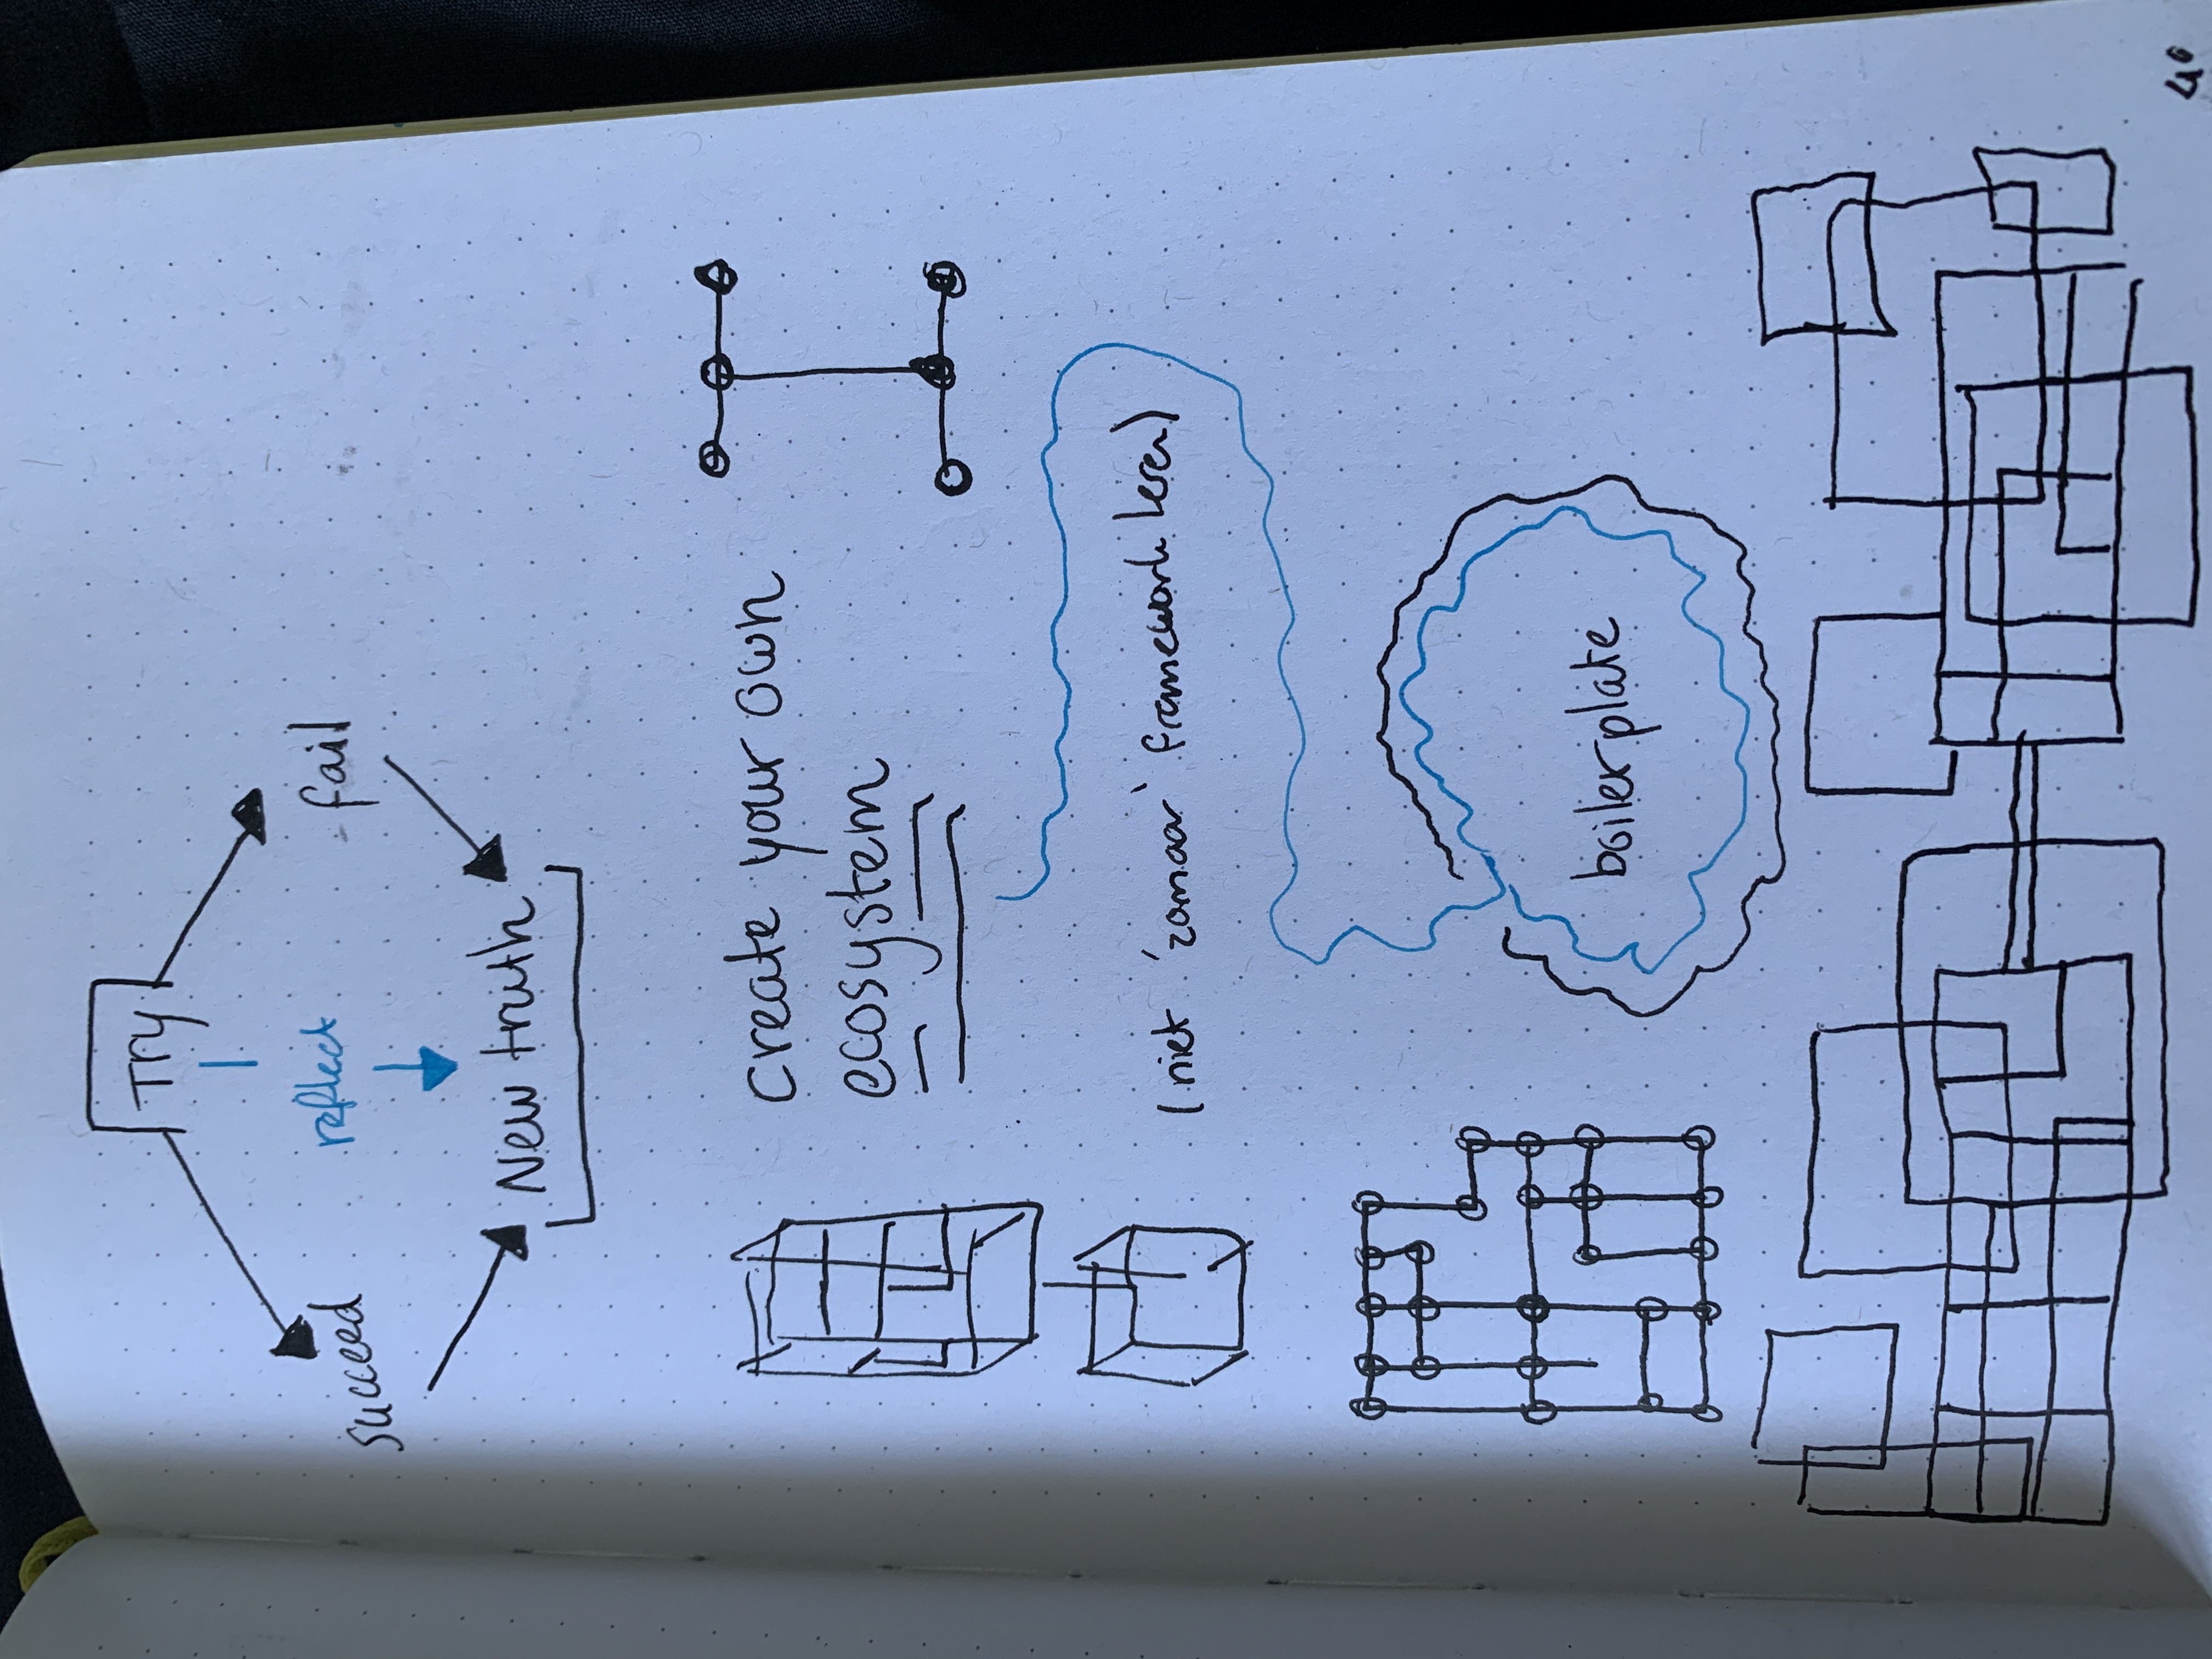 Try
reflect
succeed
fail
New truth
create your own
ecosystem
(niet 'zomaar' framework leren)
boilerplate
40